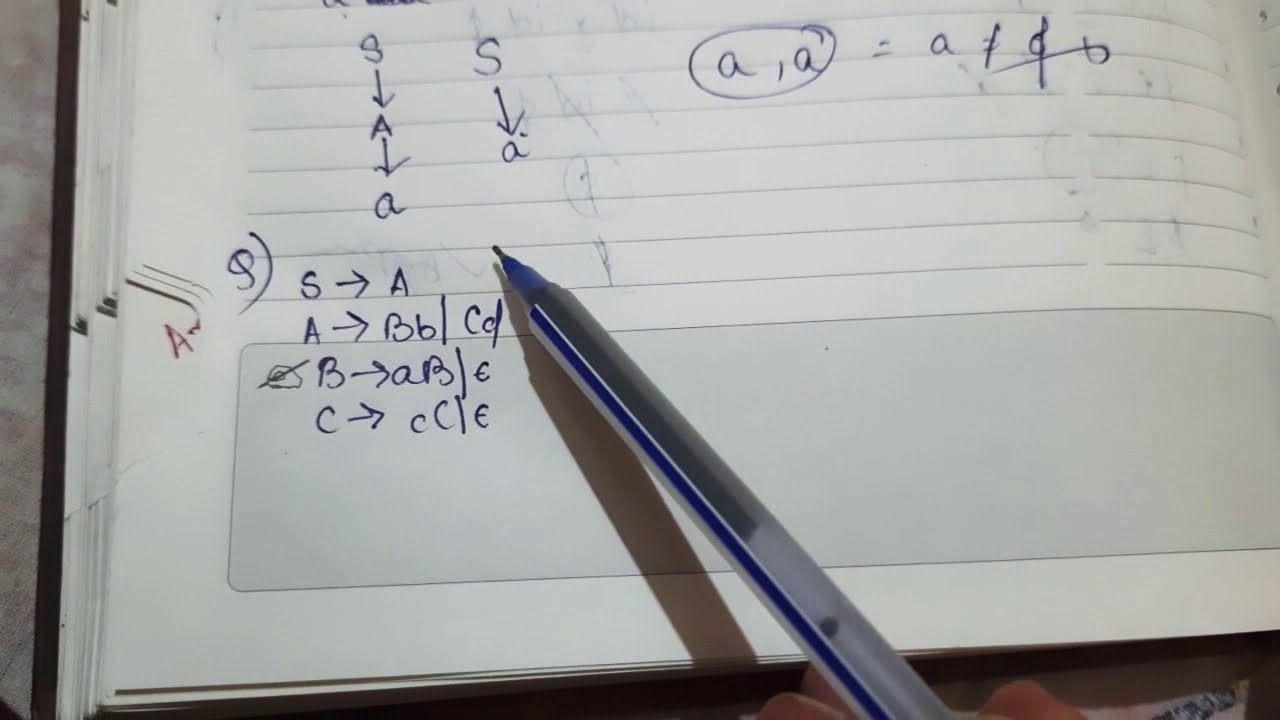 S S
(a , a) = a ≠
↓ ↓
A a
↓
a
Q) S → A
A → Bb | Cd
B → aB | ϵ
C → cC | ϵ